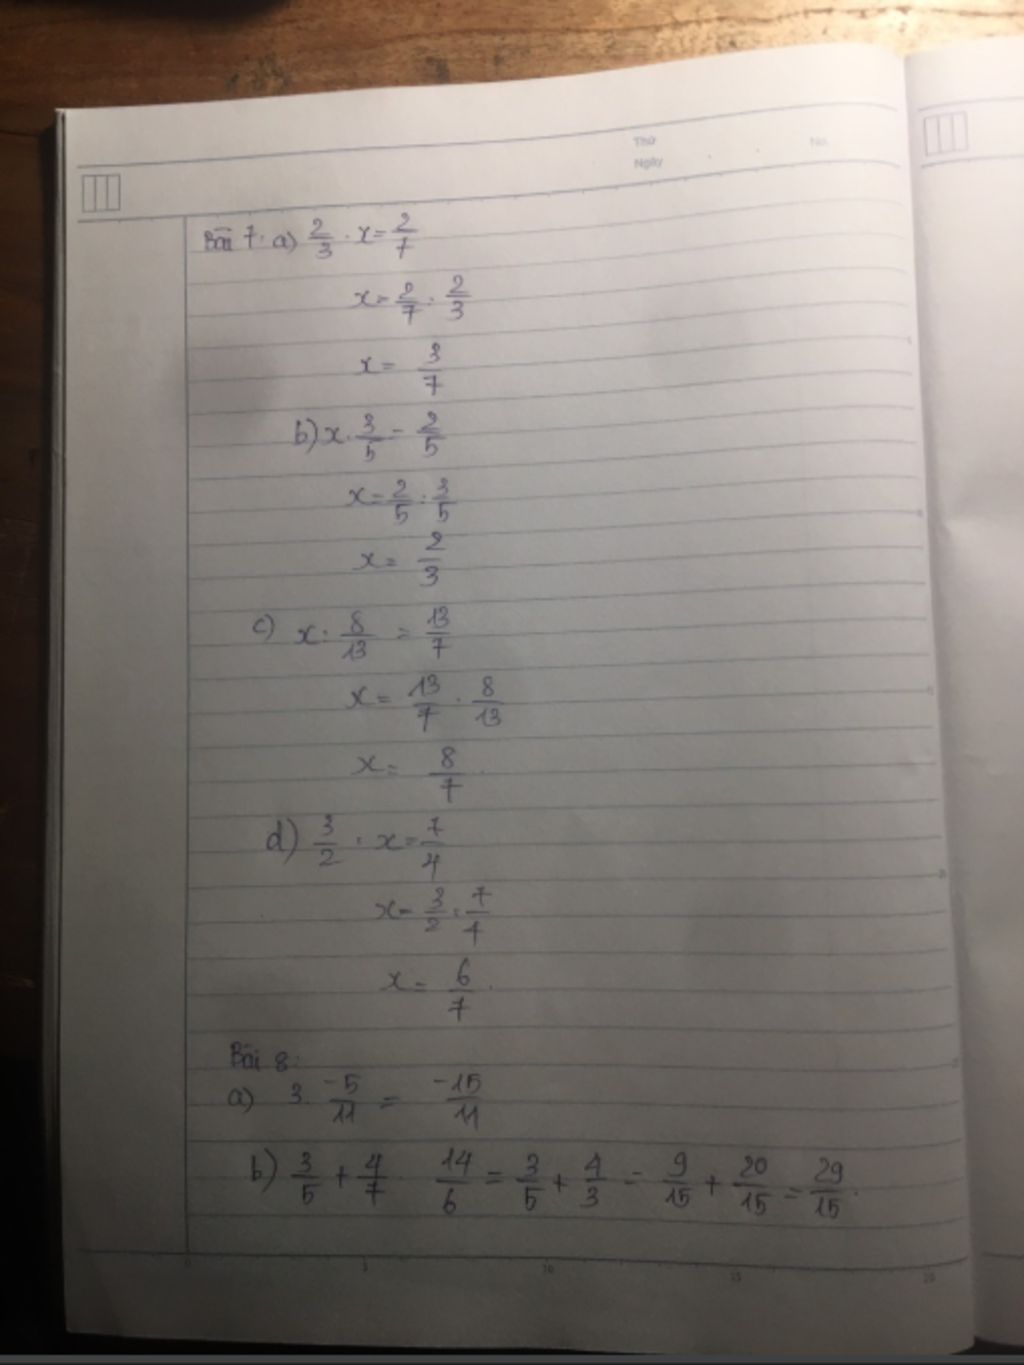 Thứ No.
Ngày
Bài 7: a) 2/3 . x = 2/7
x = 2/7 : 2/3
x = 3/7
b) x . 3/5 = 2/5
x = 2/5 : 3/5
x = 2/3
c) x : 8/13 = 13/7
x = 13/7 . 8/13
x = 8/7
d) 3/2 : x = 7/4
x = 3/2 : 7/4
x = 6/7
Bài 8:
a) 3 . -5/11 = -15/11
b) 3/5 + 4/7 . 14/6 = 3/5 + 4/3 = 9/15 + 20/15 = 29/15.
0 5 10 15 20